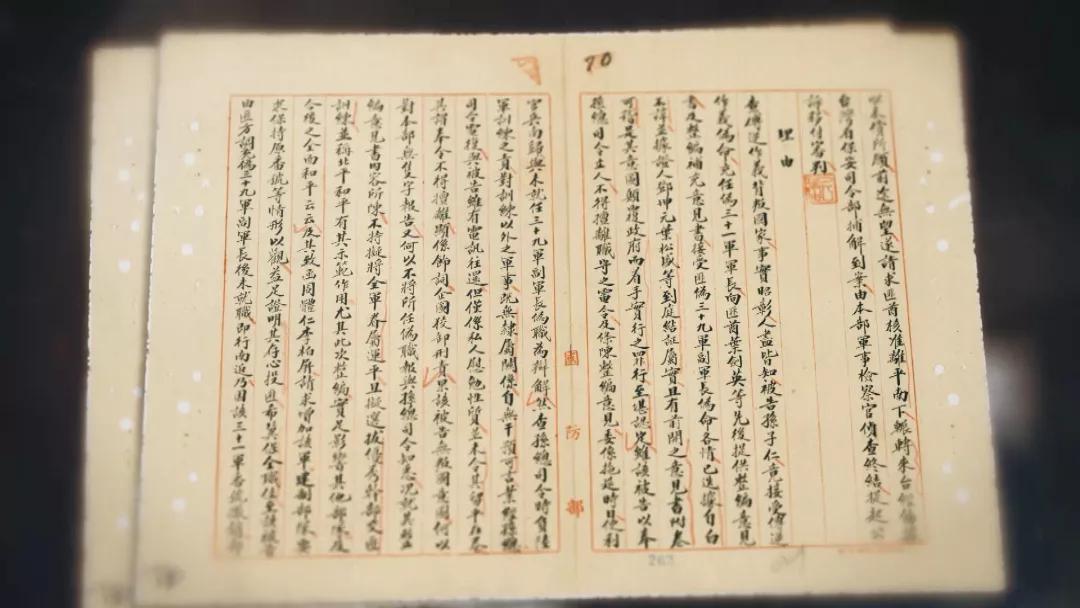 70
以未償所願前途無望遂請求匪首核准離平南下輾轉來台經
台灣省保安司令部捕解到案由本部軍事檢察官偵查終結提起公
訴移付審判
理由
查傅逆作義背叛國家事實昭彰人盡皆知被告孫子仁竟接受傅逆
作義偽命充任偽三十一軍軍長向匪首葉劍英等先後提供整編意見
書及整編補充意見書接受匪偽三十九軍副軍長偽命各情已迭據自白
不諱並據證人鄧坤元葉松盛等到庭結証屬實且有前開之意見書附卷
可稽是其意圖顛覆政府而着手實行之罪行至堪認定雖該被告以奉
孫總司令主人不得擅離職守之電令及條陳整編意見委係拖延時日便利
官兵南歸與未就任三十九軍副軍長偽職為辯解然查孫總司令時負陸
軍訓練之責對訓練以外之軍事既無隸屬關係自無干預可言業經孫總
司令電復與被告雖有電訊往還但僅係私人慰勉性質並未令其留平在卷
其謂奉令不得擅離顯係飾詞企圖狡卸刑責果該被告無叛國意圖何以
對本部無隻字報告又何以不將所任偽職報與孫總司令知悉況就其
編意見書內容所陳不特擬將全軍眷屬運平且擬選拔優秀幹部交匪
訓練並稱北平和平有其示範作用尤其此次整編實足影響其他部隊及
今後之全面和平云云及其致函周體仁李柏屏請求增加該軍建制部隊要
求保持原番號等情形以觀益足證明其存心投匪希冀保全職位至該被告
由匪方調充偽三十九軍副軍長後未就職即行南返乃因該三十一軍番號撤銷
國防部
263